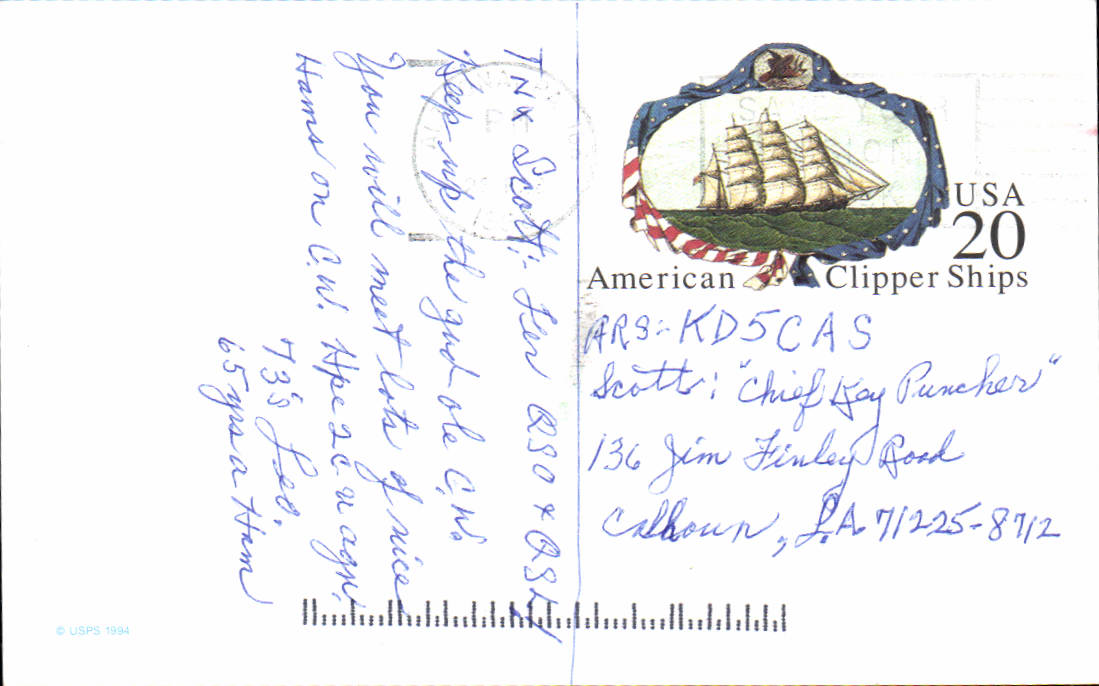 TNX Scott:- Fer QSO & QSL!
Keep up the gud ole C.W.
You will meet lots of nice
Hams on C.W. Hpe 2 c u agn.
73's Leo.
65 yrs a Ham
USA
20
American Clipper Ships
ARS:- KD5CAS
Scott: "Chief Key Puncher"
136 Jim Finley Road
Calhoun, LA. 71225-8712
© USPS 1994